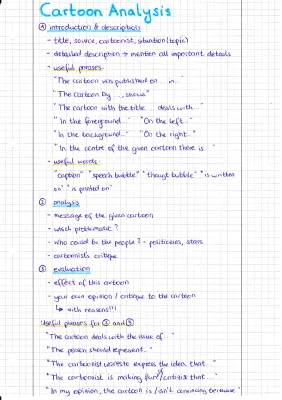 Cartoon Analysis
① introduction & description
- title, source, cartoonist, situation (topic)
- detailed description → mention all important details
- useful phrases:
"The cartoon was published on ... in..
"The cartoon by ..., shows"
"The cartoon with the title ... deals with..."
"In the foreground..." "On the left..."
"In the background.." "On the right..."
"In the centre of the given cartoon there is ..."
- useful words:
"caption" "speech bubble" "though bubble" "is written
on" "is printed on"
② analysis
- message of the given cartoon
- which problematic?
- who could be the people? - politicians, stars
- cartoonist's critique
③ evaluation
- effect of this cartoon
- your own opinion / critique to the cartoon
↳ with reasons!!!
Useful phrases for ② and ③
"The cartoon deals with the issue of..."
"The person should represent..."
"The cartoonist wants to express the idea that..."
"The cartoonist is making fun of/critics that..."
"In my opinion, the cartoon is/isn't convincing because